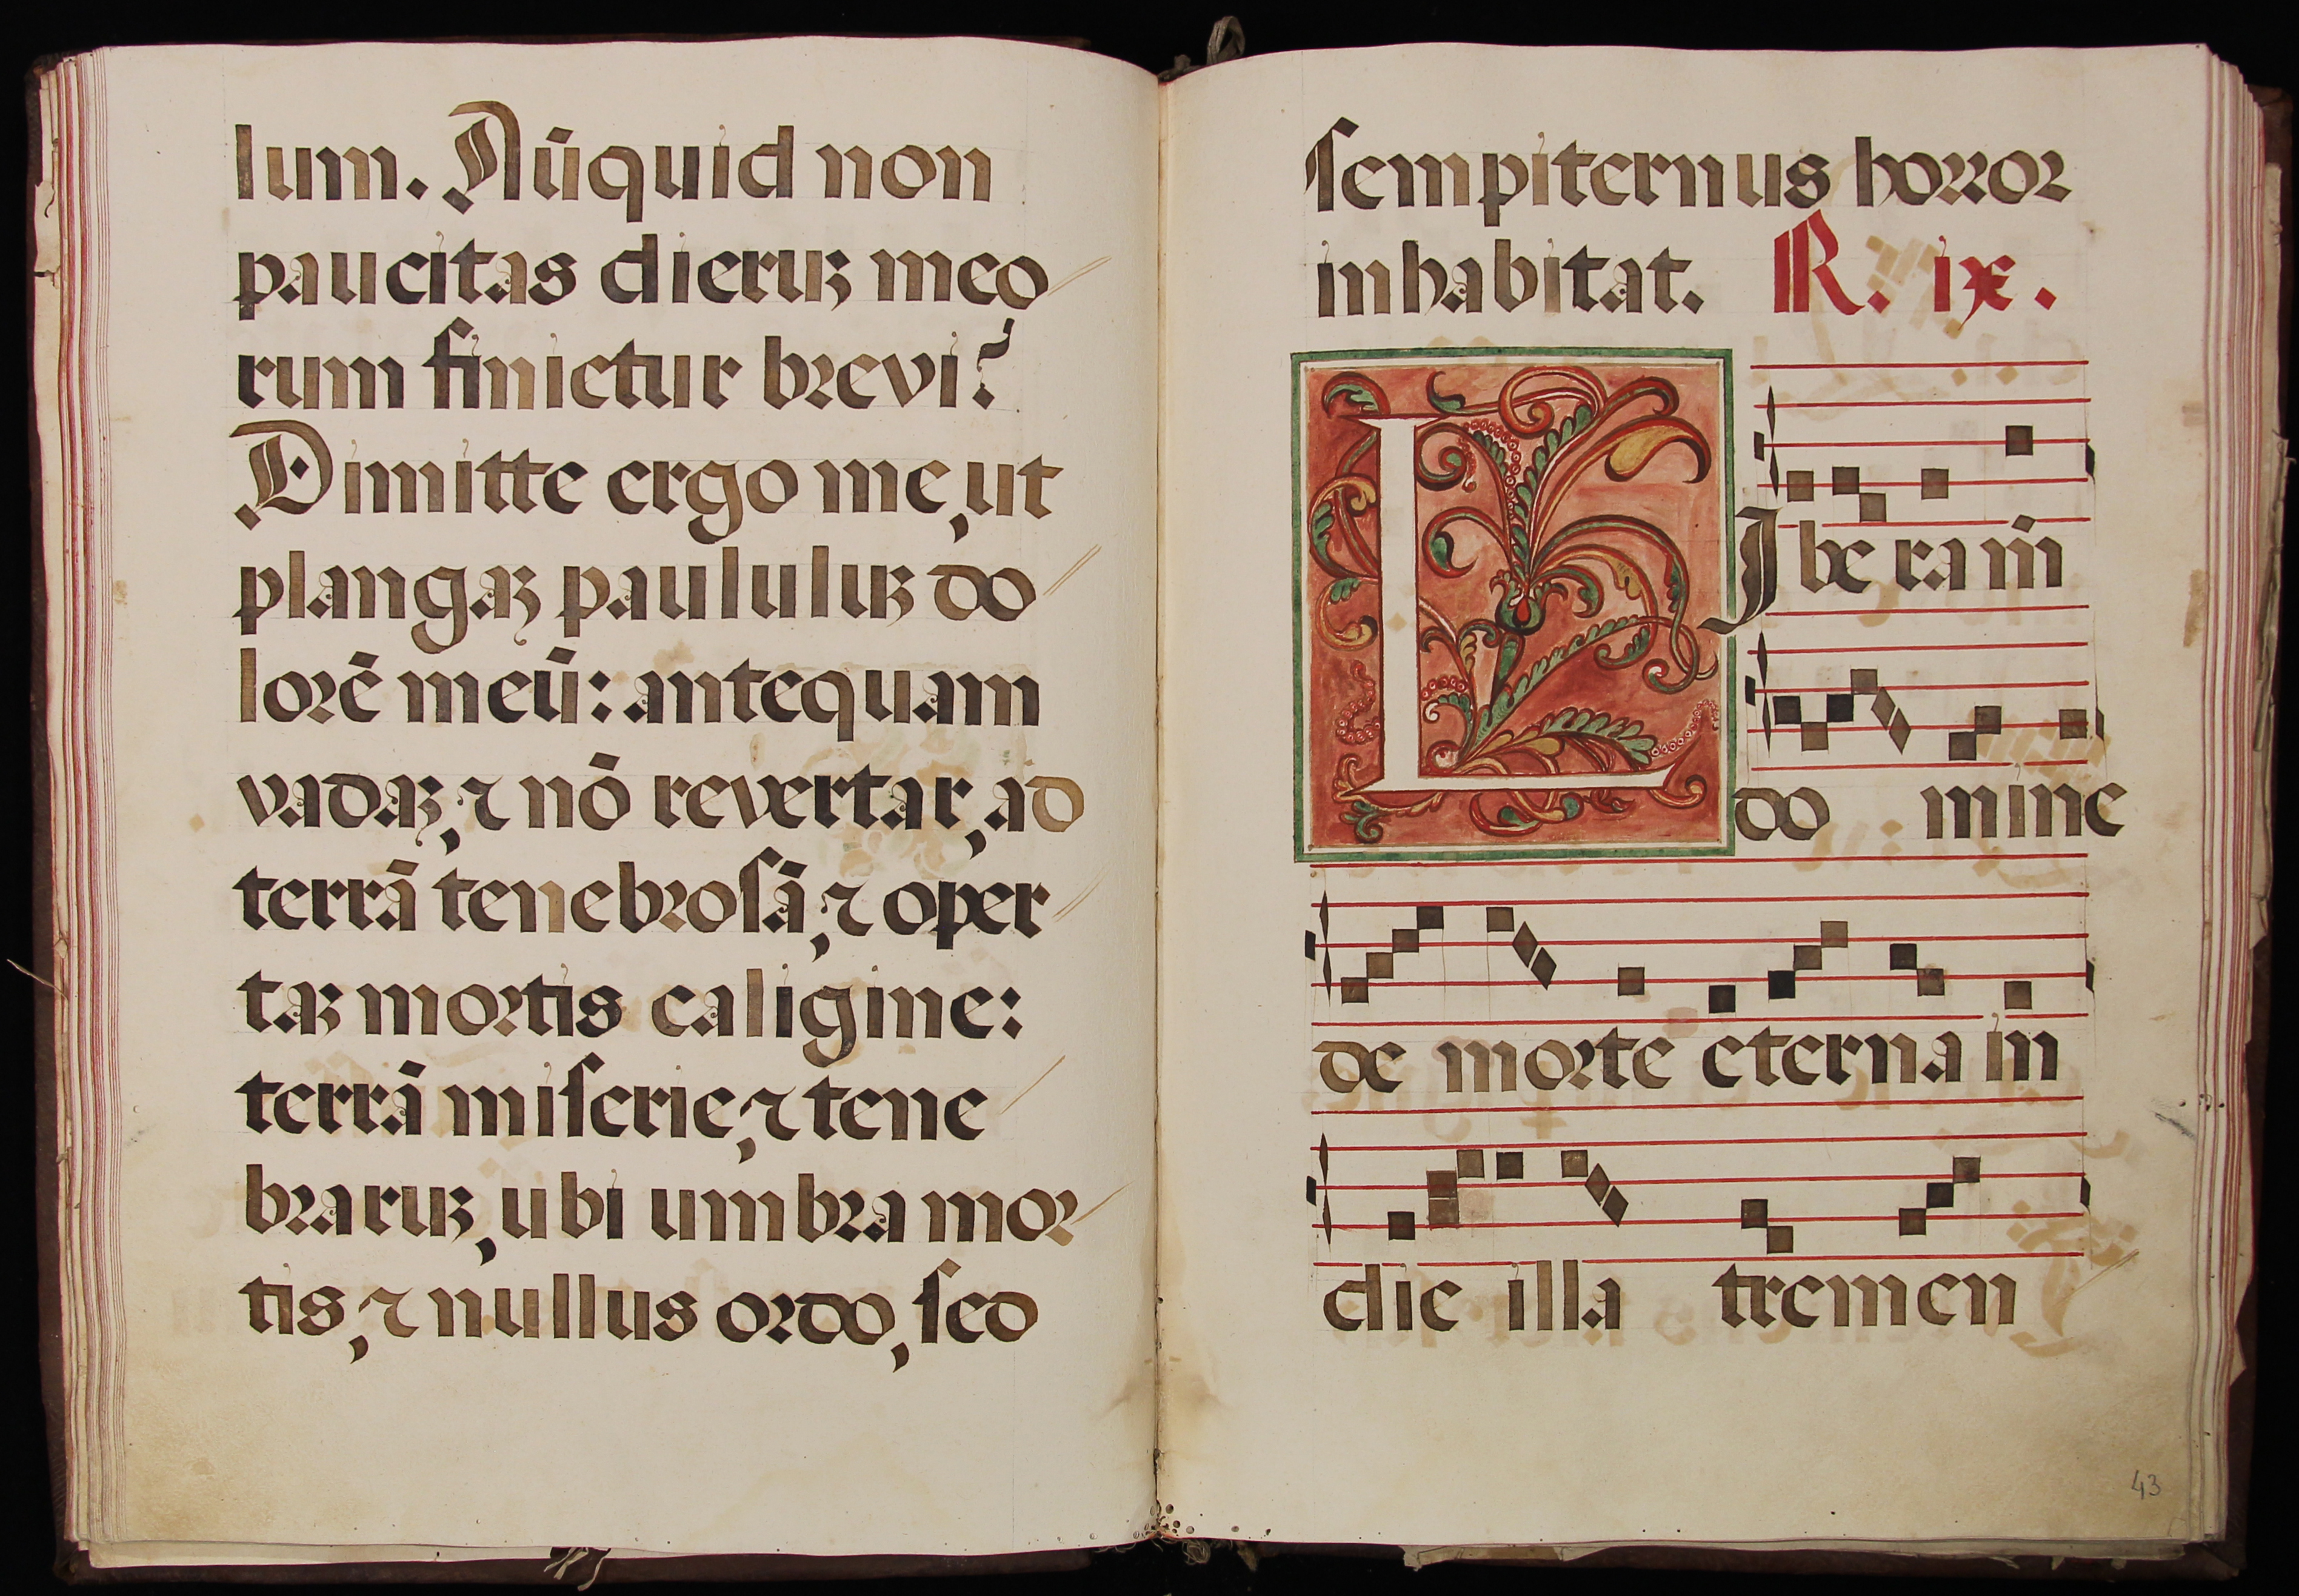 lum. Nūquid non
paucitas dieruꝫ meo
rum finietur brevi?
Dimitte ergo me, ut
plangaꝫ paululuꝫ do
lorē meū: antequam
vadaꝫ, ⁊ nō revertar, ad
terrā tenebrosā, ⁊ oper
taꝫ mortis caligine:
terrā miserie, ⁊ tene
braruꝫ, ubi umbra mor
tis, ⁊ nullus ordo, sed
sempiternus horror
inhabitat. R. ix.
LIbera m̄
domine
de morte eterna in
die illa tremen
43